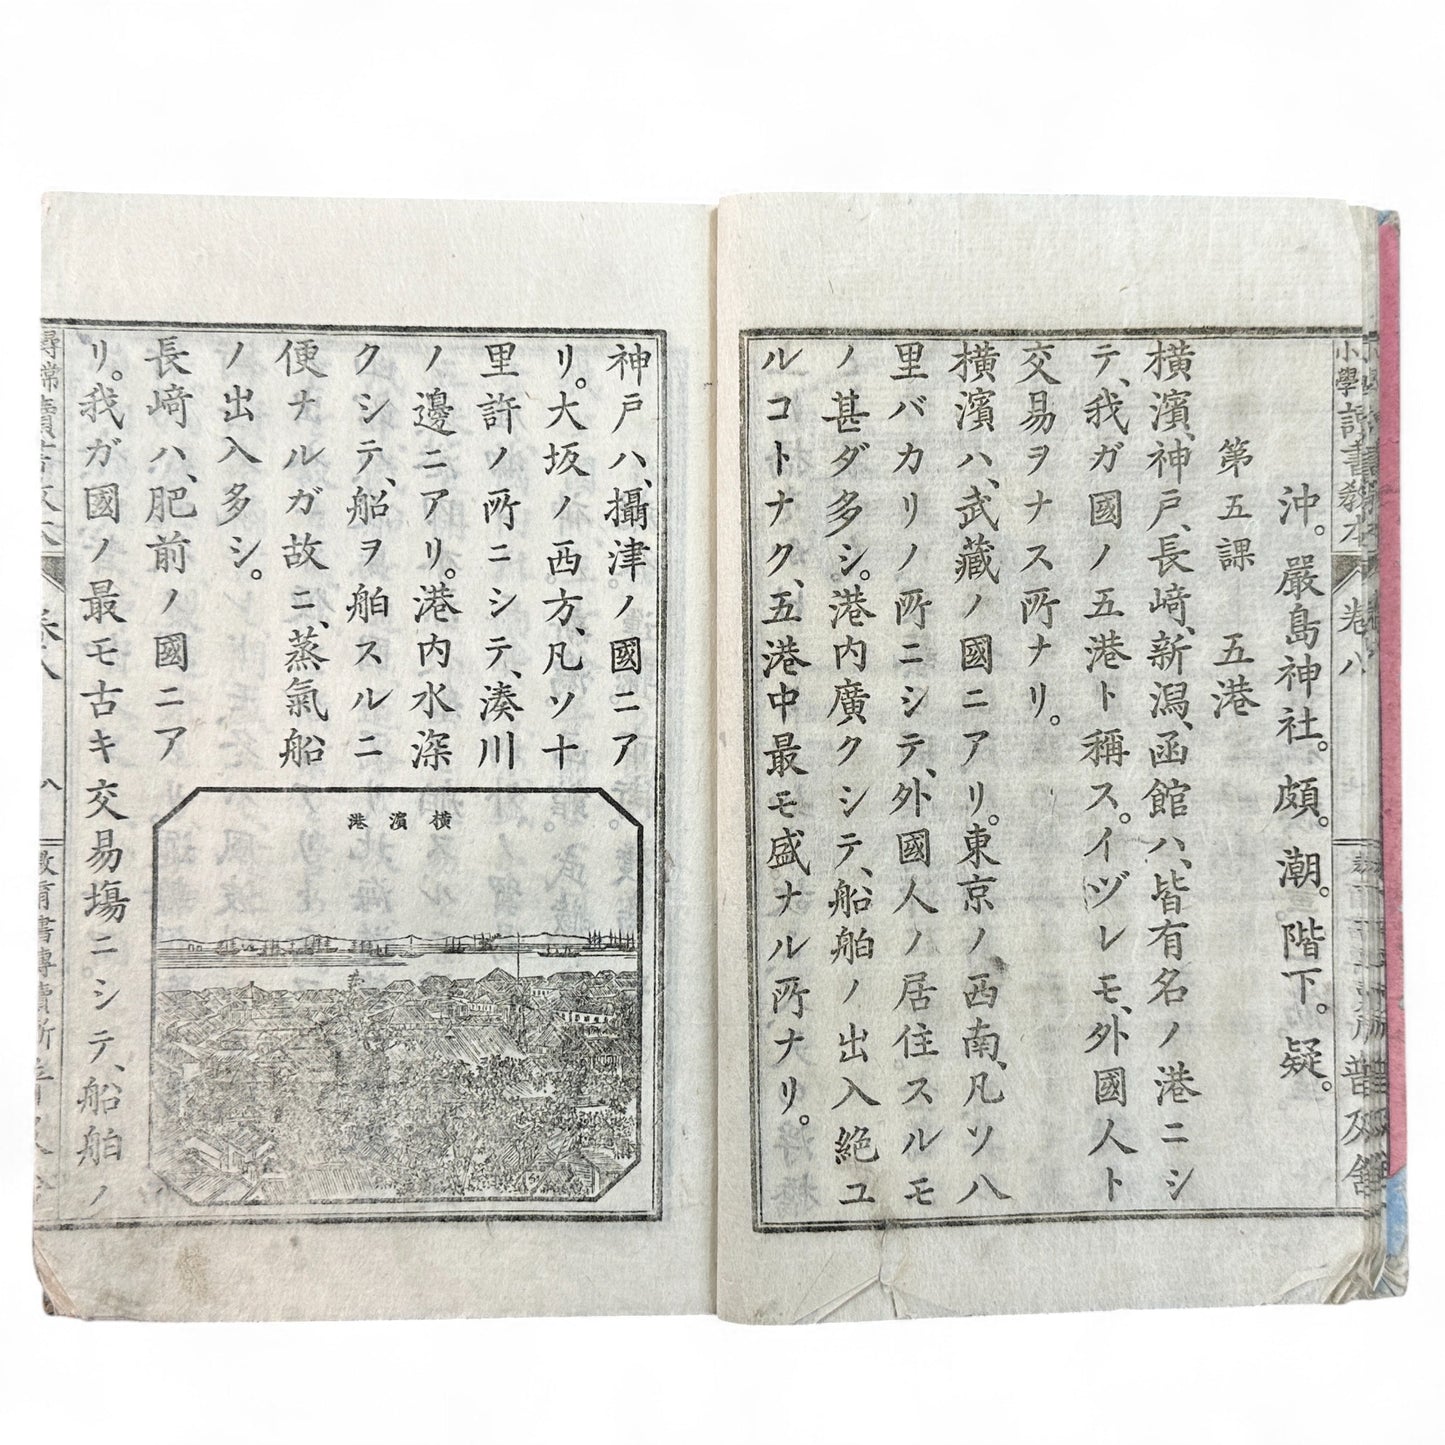 沖。嚴島神社。頗。潮。階下。疑。
第五課　五港
橫濱、神戸、長﨑、新潟、函館ハ、皆有名ノ港ニシ
テ、我ガ國ノ五港ト稱ス。イヅレモ、外國人ト
交易ヲナス所ナリ。
橫濱ハ、武藏ノ國ニアリ。東京ノ、西南、凡ソ八
里バカリノ所ニシテ、外國人ノ居住スルモ
ノ甚ダ多シ。港内廣クシテ、船舶ノ出入絶ユ
ルコトナク、五港中最モ盛ナル所ナリ。
小學讀書敎本
卷八
普及舍
神戸ハ、攝津ノ國ニア
リ。大坂ノ西方、凡ソ十
里許ノ所ニシテ、湊川
ノ邊ニアリ。港内水深
クシテ、船ヲ舶スルニ
便ナルガ故ニ、蒸氣船
ノ出入多シ。
長﨑ハ、肥前ノ國ニア
リ。我ガ國ノ最モ古キ交易塲ニシテ、船舶ノ
橫濱港
尋常
卷八
八
敎育書專賣所